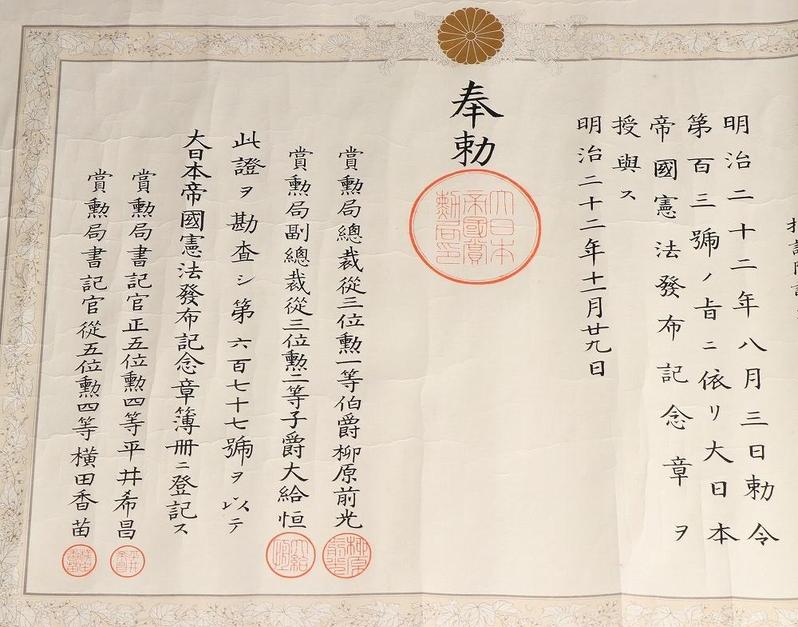 明治二十二年八月三日勅令
第百三號ノ旨ニ依リ大日本
帝國憲法發布記念章ヲ
授與ス
明治二十二年十一月廿九日
奉勅
大日本
帝國賞
勲局印
賞勲局總裁從三位勲一等伯爵柳原前光
賞勲局副總裁從三位勲二等子爵大給恒
此證ヲ勘査シ第六百七十七號ヲ以テ
大日本帝國憲法發布記念章簿册ニ登記ス
賞勲局書記官正五位勲四等平井希昌
賞勲局書記官從五位勲四等横田香苗